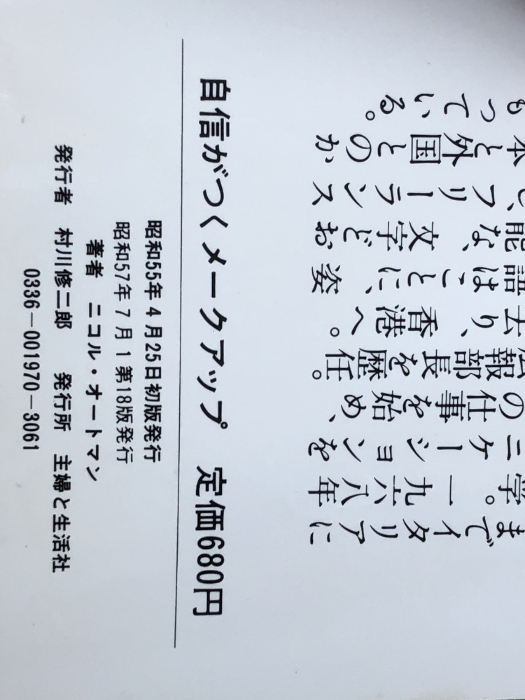 までイタリアに
学。一九六八年
ニケーションを
の仕事を始め、
報部長を歴任。
去り、香港へ。
語はことに、姿
能な、文字どお
、フリーランス
本と外国とのか
もっている。
自信がつくメークアップ 定価680円
昭和55年4月25日初版発行
昭和57年7月1第18版発行
著者 ニコル・オートマン
発行者 村川修二郎 発行所 主婦と生活社
0336-001970-3061